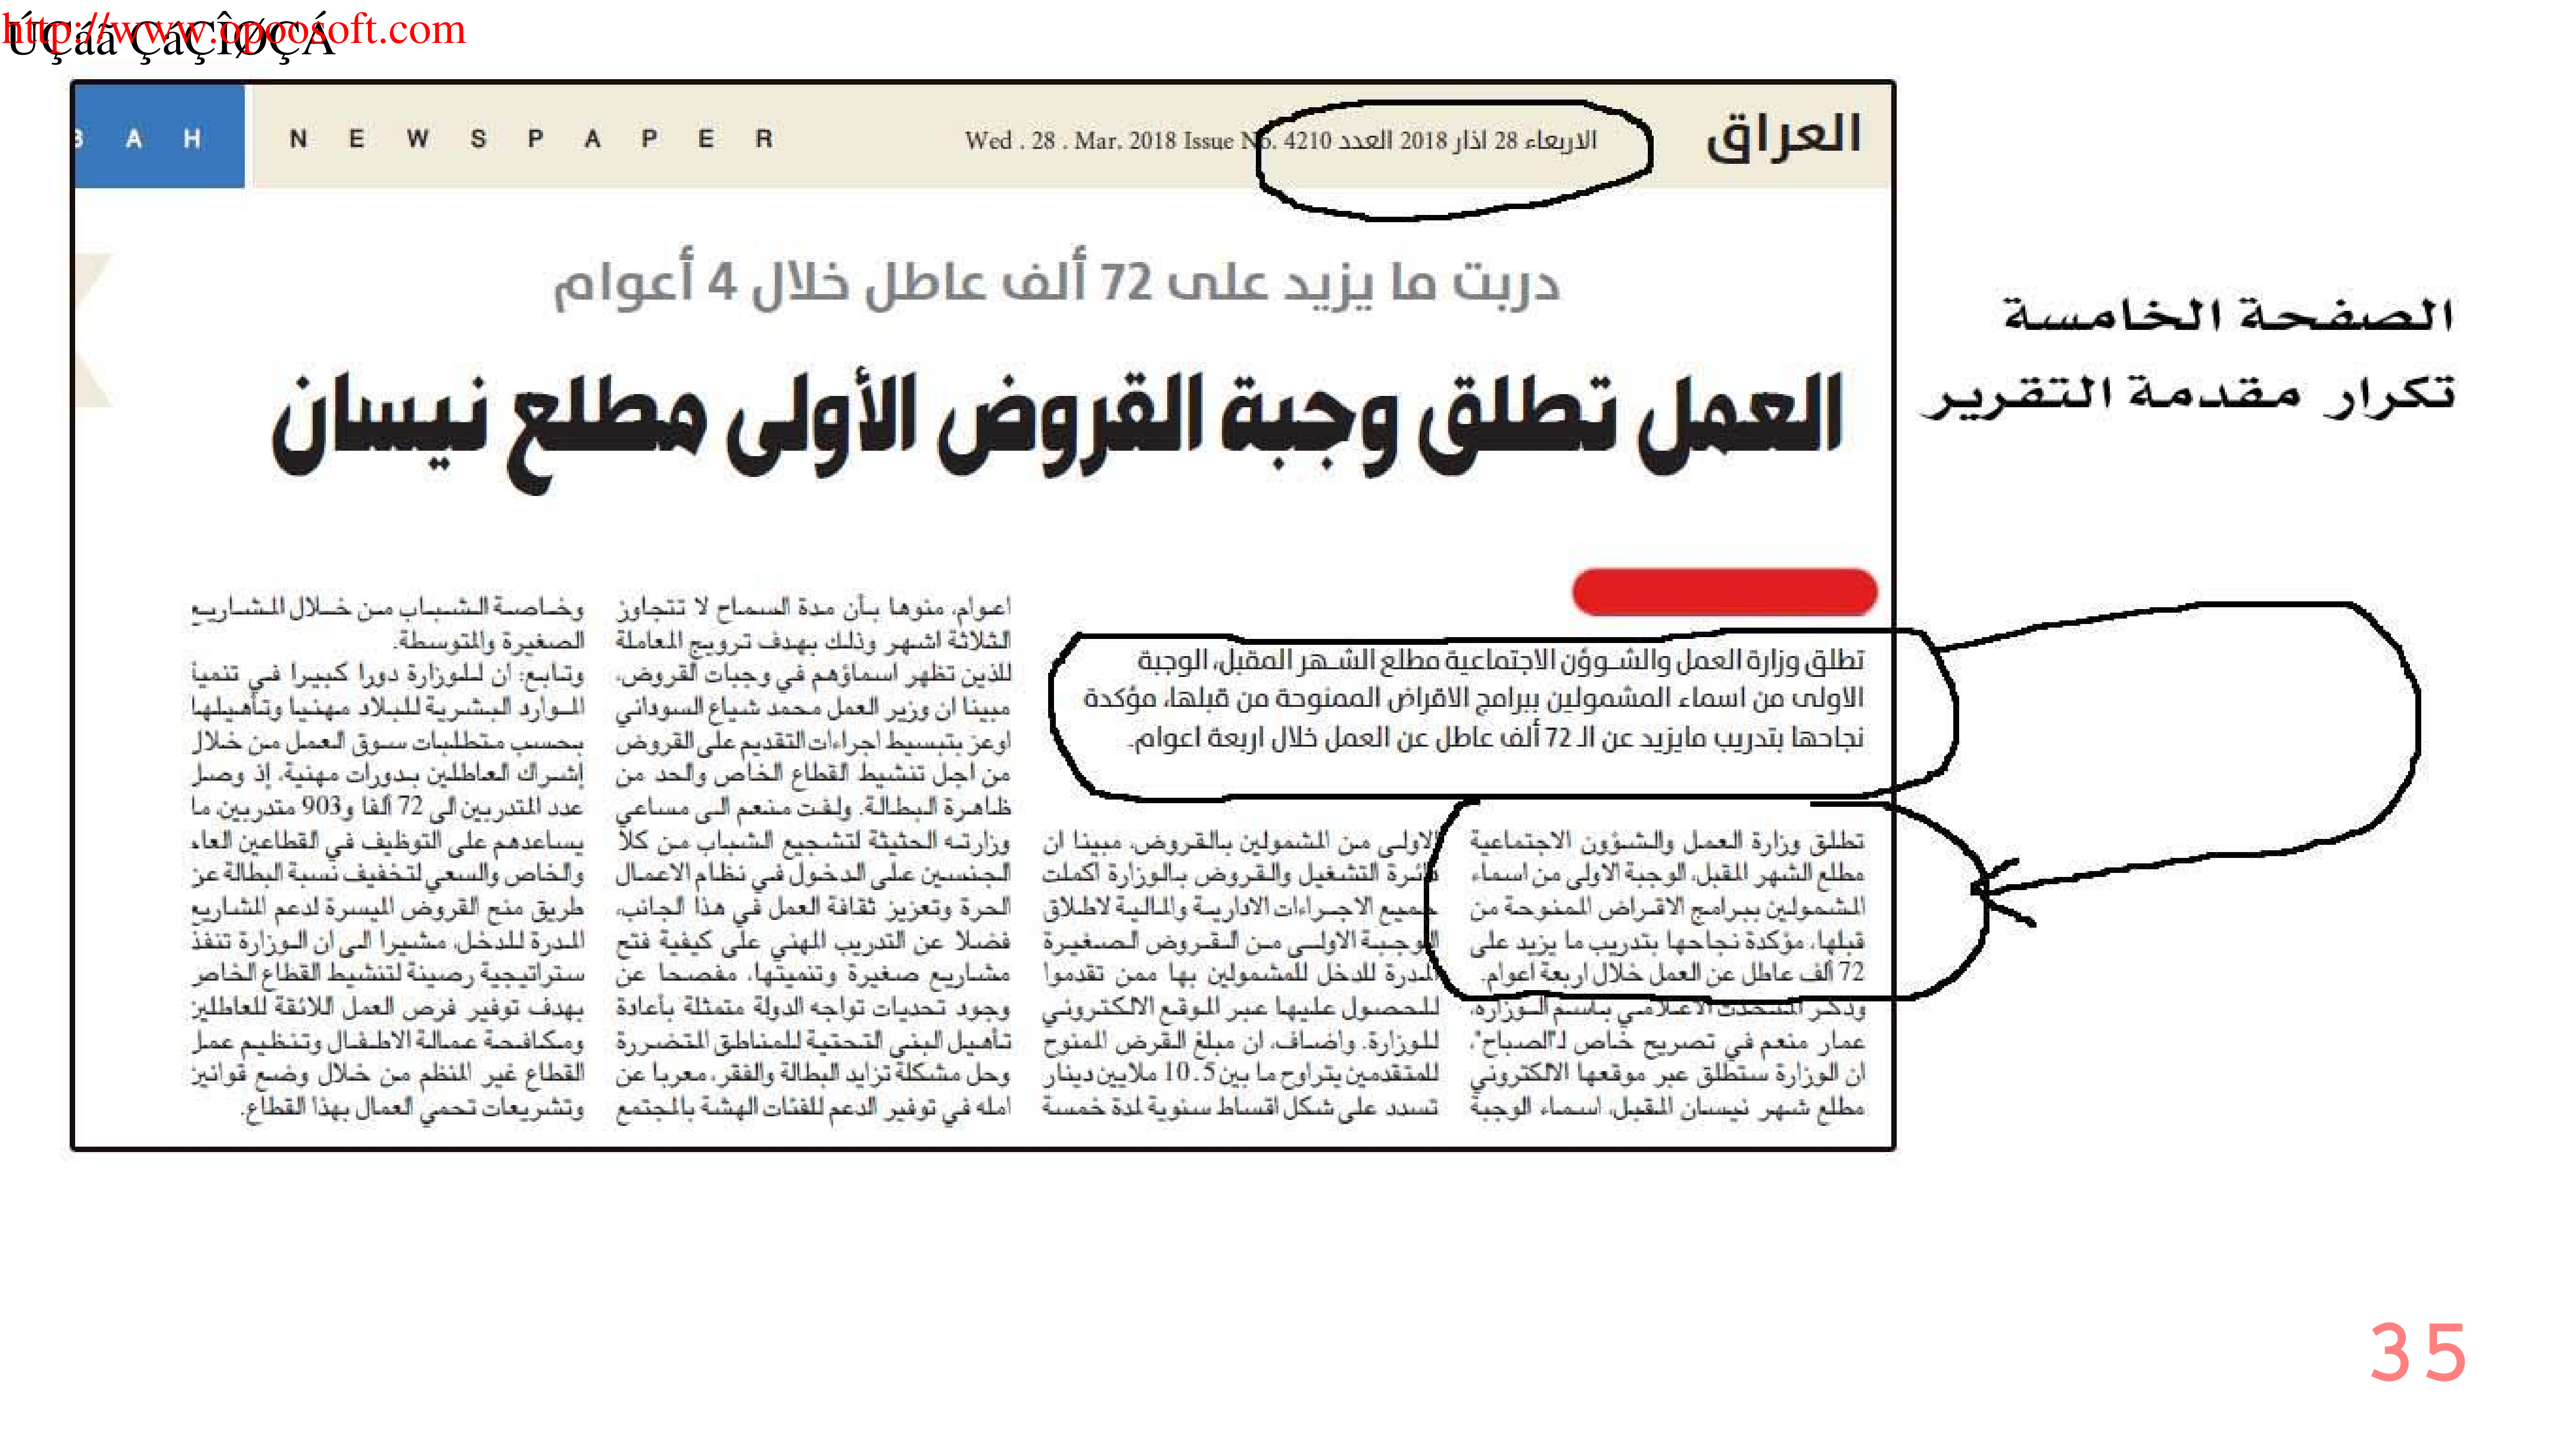 http://www.opoosoft.com
ÚÇáã ÇáÇÎØÇÁ
BAH NEWSPAPER
Wed . 28 . Mar. 2018 Issue No. 4210 الاربعاء 28 اذار 2018 العدد
العراق
دربت ما يزيد على 72 ألف عاطل خلال 4 أعوام
العمل تطلق وجبة القروض الأولى مطلع نيسان
الصفحة الخامسة
تكرار مقدمة التقرير
تطلق وزارة العمل والشـوؤن الاجتماعية مطلع الشـهر المقبل، الوجبة
الاولى من اسماء المشمولين ببرامج الاقراض الممنوحة من قبلها، مؤكدة
نجاحها بتدريب مايزيد عن الـ 72 ألف عاطل عن العمل خلال اربعة اعوام.
تطلق وزارة العمل والشؤون الاجتماعية
مطلع الشهر المقبل، الوجبة الاولى من اسماء
المشمولين ببرامج الاقراض الممنوحة من
قبلها، مؤكدة نجاحها بتدريب ما يزيد على
72 ألف عاطل عن العمل خلال اربعة اعوام.
وذكر المتحدث الاعلامي باسم الوزارة،
عمار منعم في تصريح خاص لـ"الصباح"،
ان الوزارة ستطلق عبر موقعها الالكتروني
مطلع شهر نيسان المقبل، اسماء الوجبة
الاولى من المشمولين بالقروض، مبينا ان
دائرة التشغيل والقروض بالوزارة اكملت
جميع الاجراءات الادارية والمالية لاطلاق
الوجبة الاولى من القروض الصغيرة
المدرة للدخل للمشمولين بها ممن تقدموا
للحصول عليها عبر الموقع الالكتروني
للوزارة. واضاف، ان مبلغ القرض الممنوح
للمتقدمين يتراوح ما بين 5ـ10 ملايين دينار
تسدد على شكل اقساط سنوية لمدة خمسة
اعوام، منوها بأن مدة السماح لا تتجاوز
الثلاثة اشهر وذلك بهدف ترويج المعاملة
للذين تظهر اسماؤهم في وجبات القروض،
مبينا ان وزير العمل محمد شياع السوداني
اوعز بتبسيط اجراءات التقديم على القروض
من اجل تنشيط القطاع الخاص والحد من
ظاهرة البطالة. ولفت منعم الى مساعي
وزارته الحثيثة لتشجيع الشباب من كلا
الجنسين على الدخول في نظام الاعمال
الحرة وتعزيز ثقافة العمل في هذا الجانب،
فضلا عن التدريب المهني على كيفية فتح
مشاريع صغيرة وتنميتها، مفصحا عن
وجود تحديات تواجه الدولة متمثلة بأعادة
تأهيل البنى التحتية للمناطق المتضررة
وحل مشكلة تزايد البطالة والفقر، معربا عن
امله في توفير الدعم للفئات الهشة بالمجتمع
وخاصة الشباب من خلال المشاريع
الصغيرة والمتوسطة.
وتابع: ان للوزارة دورا كبيرا في تنمية
الموارد البشرية للبلاد مهنيا وتأهيلها
بحسب متطلبات سوق العمل من خلال
إشراك العاطلين بدورات مهنية، إذ وصل
عدد المتدربين الى 72 ألفا و903 متدربين ما
يساعدهم على التوظيف في القطاعين العام
والخاص والسعي لتخفيف نسبة البطالة عن
طريق منح القروض الميسرة لدعم المشاريع
المدرة للدخل، مشيرا الى ان الوزارة تنفذ
ستراتيجية رصينة لتنشيط القطاع الخاص
بهدف توفير فرص العمل اللائقة للعاطلين
ومكافحة عمالة الاطفال وتنظيم عمل
القطاع غير المنظم من خلال وضع قوانين
وتشريعات تحمي العمال بهذا القطاع.
35